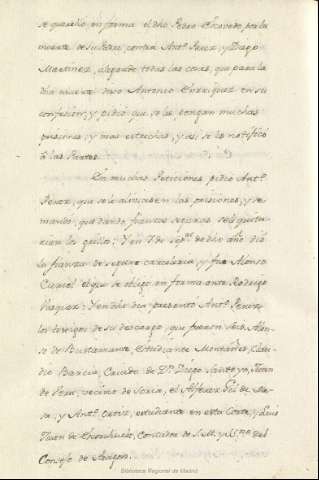 se querelló en forma el dho Pedro Escovedo, por la
muerte de su Padre, contra Antº Perez, y Diego
Martinez, alegando todas las cosas, que para la
dha muerte Antonio Enrriquez en su
confesion; y pidió que se les tengan muchas
prisiones, y mas estrechas, y asi se le notificó
á las Partes.
En muchas Peticiones pidió Antº
Perez, que se le aliviasen las prisiones, y se
mandó, que dando fianzas seguras se le quita-
rian los grillos: Y en 7 de sepre. de dho año dió
la fianza de seguro carcelaria, y fue Alonso
Curiel el que se obligó en forma ante Rodrigo
Vazquez: Yen dho dia presentó Antº Perez
los testigos de su descargo que fueron seis Alon-
so de Bustamante, Estudiante Montañes, Clau-
dio Garcia, Criado de Dn. Diego Santoyo, Juan
de Peri, vecino de Soria, el Alferez Gil de Me-
sa, y Antº Cetri, estudiante en esta Corte, y Luis
Juan de Contador de S.M. y del
Consejo de Aragon.
Biblioteca Regional de Madrid